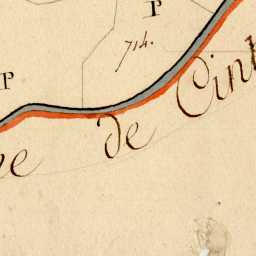 P
714.
P
de Cint